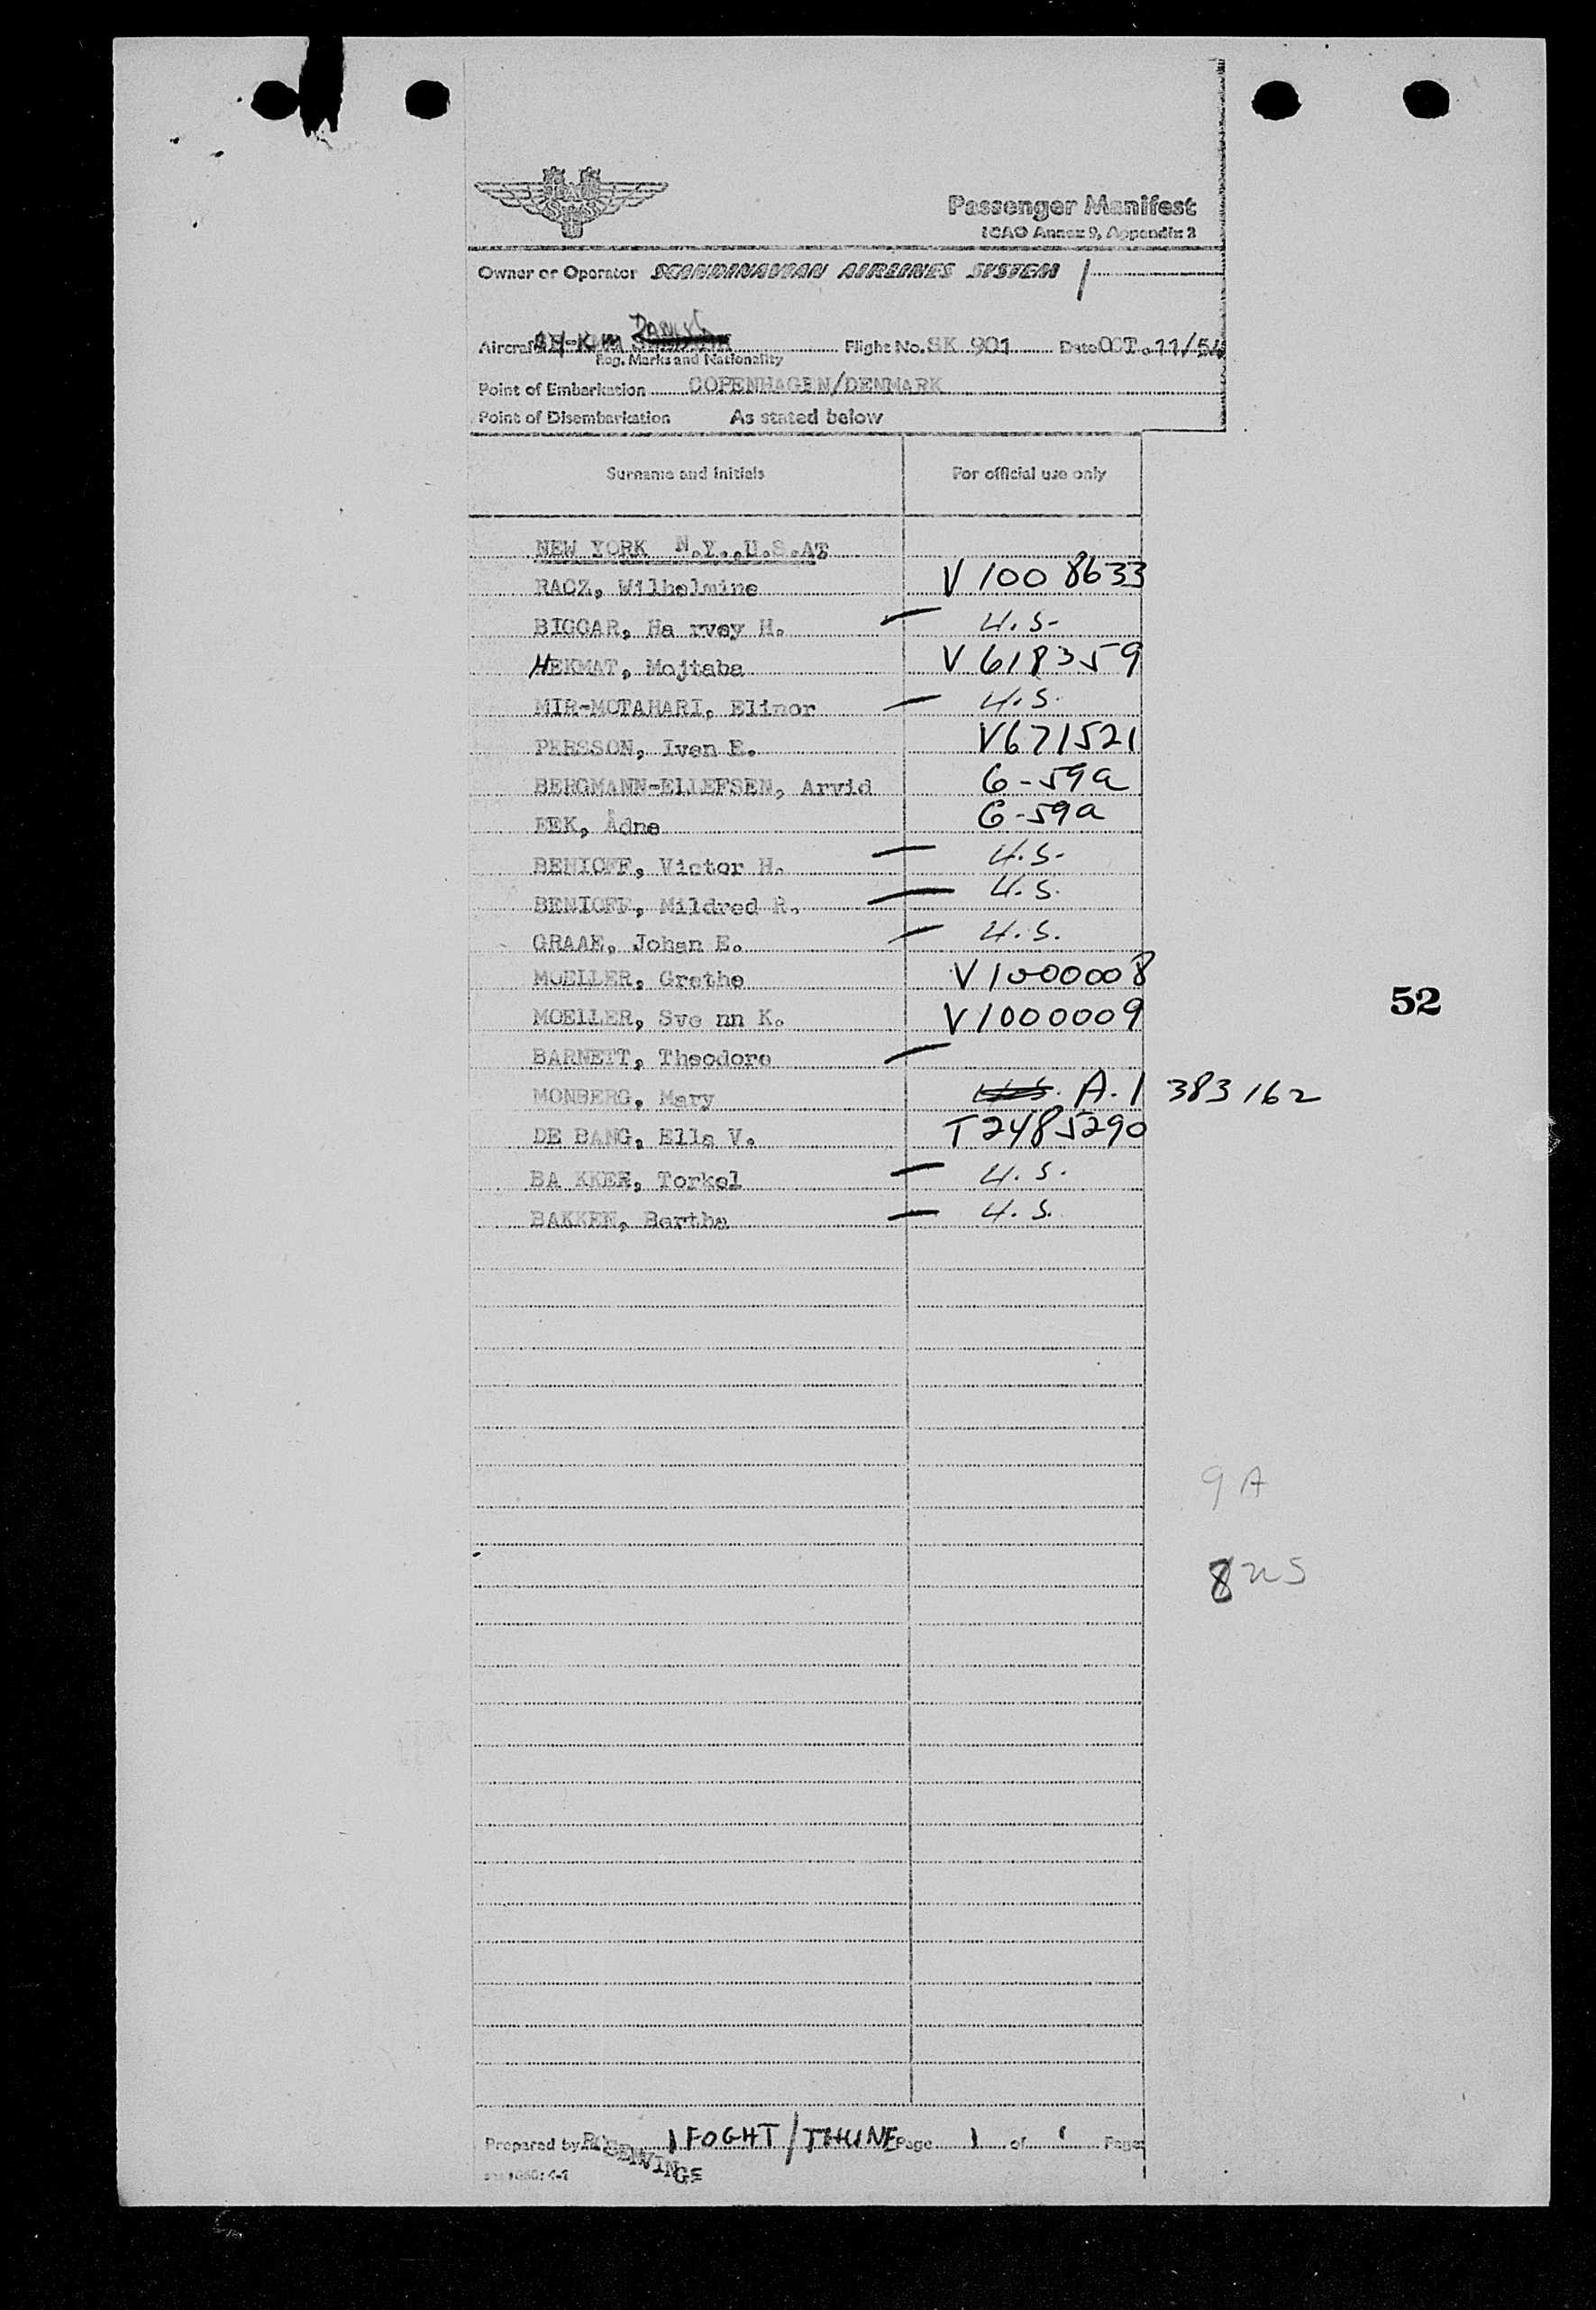 SAS
Passenger Manifest
ICAO Annex 9, Appendix 3
Owner or Operator SCANDINAVIAN AIRLINES SYSTEM /
Aircraft -KIM DANISH Flight No. SK 901 Date OCT. 11/54
Reg. Marks and Nationality
Point of Embarkation COPENHAGEN/DENMARK
Point of Disembarkation As stated below
Surname and initials For official use only
NEW YORK N.Y.,U.S.AT
RACZ, Wilhelmine V 1008633
BIGGAR, Ha rvey H. — U.S.
HEKMAT, Mojtaba V 618359
MIR-MOTAHARI, Elinor — U.S.
PERSSON, Iven E. V671521
BERGMANN-ELLEFSEN, Arvid G-59a
EEK, Ådne G-59a
BENIOFF, Victor H. — U.S.
BENIOFF, Mildred R. — U.S.
GRAAE, Johan E. — U.S.
MOELLER, Grethe V1000008
MOELLER, Sve nn K. V1000009
52
BARNETT, Theodore —
MONBERG, Mary U.S. A.1 383162
DE BANG, Ella V. T2485290
BA KKEN, Torkel — U.S.
BAKKEN, Berthe — U.S.
9 A
8 US
Prepared by ROSENVINGE / FOGHT / THUNE Page 1 of 1 Page